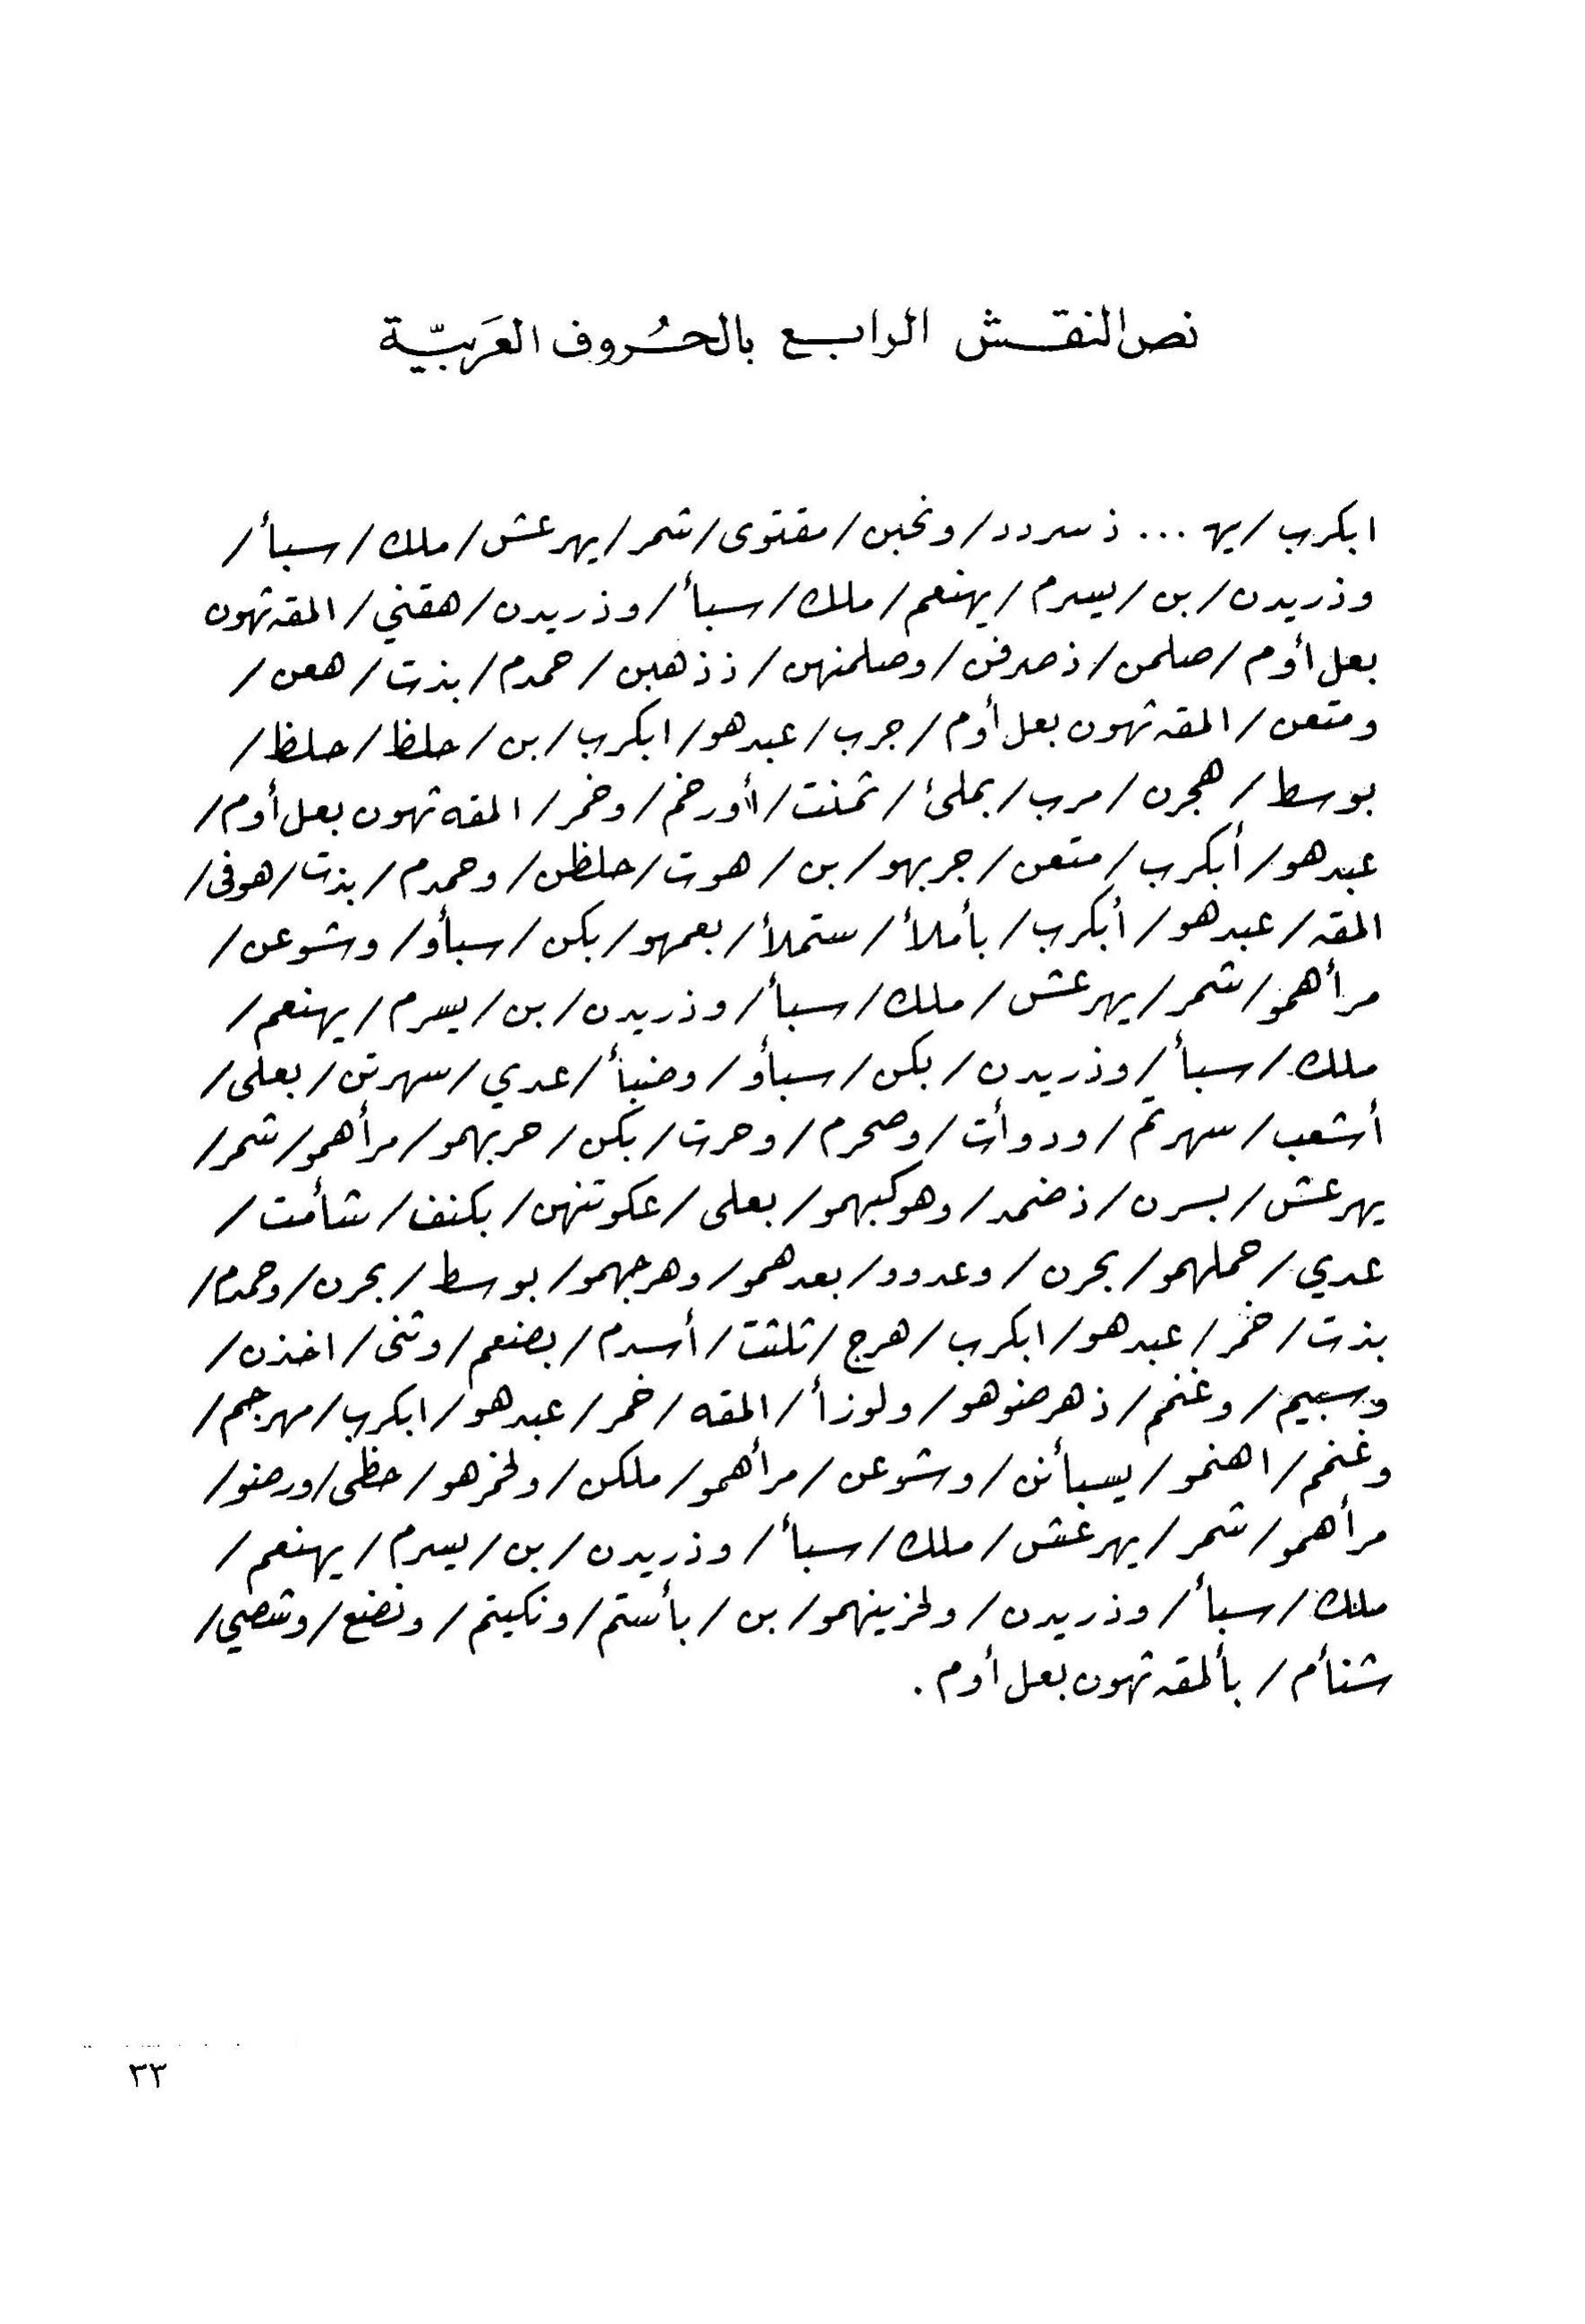 نص النقش الرابع بالحُروف العَربيّة
ابكرب/يهـ ... ذ سردد/ونحبن/مقتوى/شمر/يهرعش/ملك/سبأ/
وذريدن/بن/يسرم/يهنعم/ملك/سبأ/وذريدن/هقني/المقه ثهون
بعل أوم/صلمن/ذصرفن/وصلمنهن/ذذهبن/حمدم/بذت/هعن/
ومتعن/المقه ثهون بعل أوم/جرب/عبدهو/ابكرب/بن/حلظ/حلظ/
بوسط/هجرن/مرب/بملئ/ثمنت/أورخم/وخمر/المقه ثهون بعل أوم/
عبدهو/أبكرب/متعن/جربهو/بن/هوت/حلظن/وحمدم/بذت/هوفى/
المقه/عبدهو/أبكرب/بأملأ/ستملأ/بعمهو/بكن/سبأو/وشوعن/
مرأهمو/شمر/يهرعش/ملك/سبأ/وذريدن/بن/يسرم/يهنعم/
ملك/سبأ/وذريدن/بكن/سبأو/وضبأ/عدي/سهرتن/بعلى/
أشعب/سهرتم/ودوأت/وصحرم/وحرت/بكن/حربهمو/مرأهمو/شمر/
يهرعش/بسرن/ذضمد/وهوكبهمو/بعلى/عكوتنهن/بكنف/شأمت/
عدي/حملهمو/بحرن/وعدوو/بعدهمو/وهرجهمو/بوسط/بحرن/وحمدم/
بذت/خمر/عبدهو/ابكرب/هرج/ثلثت/أسدم/بضنعم/وثنى/اخذن/
وسبيم/وغنمم/ذهرضوهو/ولوزأ/المقه/خمر/عبدهو/ابكرب/مهرجم/
وغنمم/اهنمو/يسبأنن/وشوعن/مرأهمو/ملكن/ولخمرهو/حظى/ورضو/
مرأهمو/شمر/يهرعش/ملك/سبأ/وذريدن/بن/يسرم/يهنعم/
ملك/سبأ/وذريدن/ولخزينهمو/بن/بأستم/ونكيتم/ونضع/وشصي/
شنأم/بألمقه ثهون بعل أوم.
٣٣